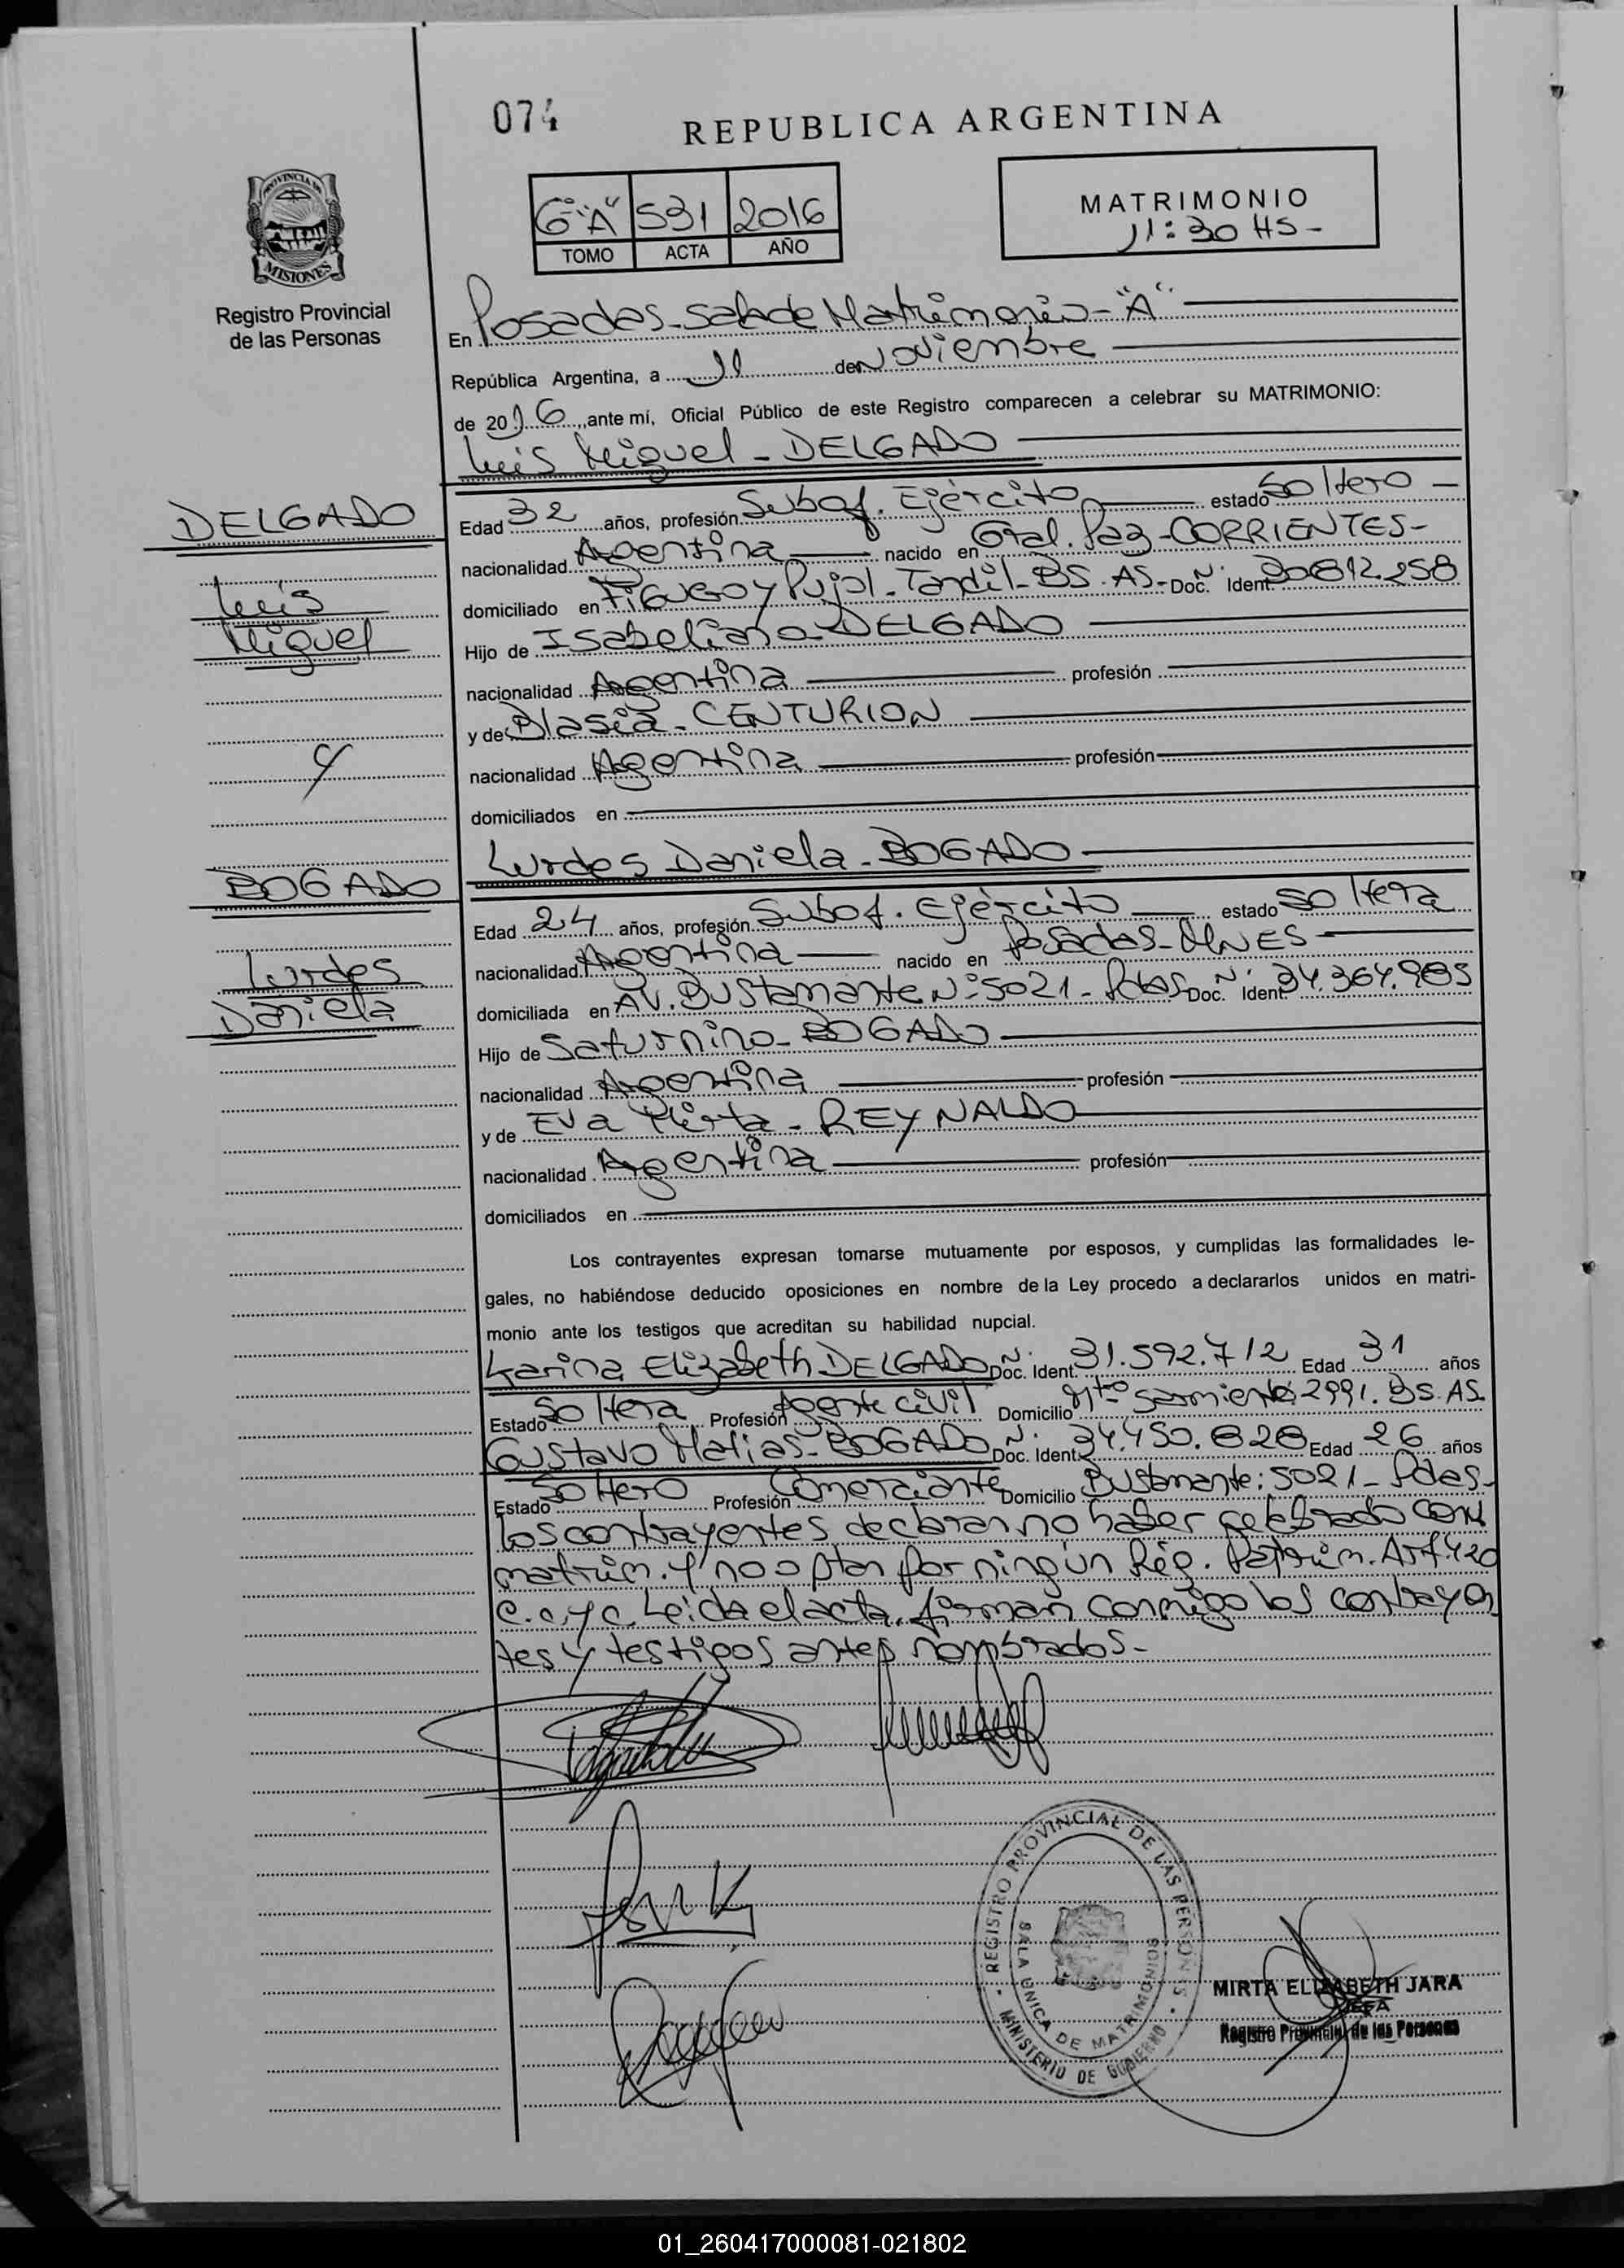 074
REPUBLICA ARGENTINA
PROVINCIA DE
MISIONES
Registro Provincial
de las Personas
6º "A" 531 2016
TOMO ACTA AÑO
MATRIMONIO
11:30 HS-
En Posadas-Sala de Matrimonio-"A"
República Argentina, a 11 de Noviembre
de 2016, ante mí, Oficial Público de este Registro comparecen a celebrar su MATRIMONIO:
Luis Miguel - DELGADO
DELGADO
Luis
Miguel
Edad 32 años, profesión Subof. Ejército estado Soltero
nacionalidad Argentina nacido en Gral. Paz-CORRIENTES-
domiciliado en y Pujol-Tandil-BS.AS- Doc. N. Ident. 30812.258
Hijo de Isabeliano DELGADO
nacionalidad Argentina profesión
y de Blasia-CENTURION
y
nacionalidad Argentina profesión
domiciliados en
Lurdes Daniela-BOGADO
BOGADO
Lurdes
Daniela
Edad 24 años, profesión Subof. Ejército estado Soltera
nacionalidad Argentina nacido en Posadas-
domiciliada en AV. Bustamante Nº 5021- Pdas Doc. N. Ident. 34.364.985
Hijo de Saturnino-BOGADO
nacionalidad Argentina profesión
y de Eva Mirta-REYNALDO
nacionalidad Argentina profesión
domiciliados en
Los contrayentes expresan tomarse mutuamente por esposos, y cumplidas las formalidades le-
gales, no habiéndose deducido oposiciones en nombre de la Ley procedo a declararlos unidos en matri-
monio ante los testigos que acreditan su habilidad nupcial.
Karina Elizabeth DELGADO Doc. N. Ident. 31.592.712 Edad 31 años
Estado Soltera Profesión Agente civil Domicilio Sarmiento 2991. BS.AS.
Gustavo Matias-BOGADO Doc. N. Ident. 34.450.828 Edad 26 años
Estado Soltero Profesión Comerciante Domicilio Bustamante: 5021-Pdas-
los contrayentes declaran no haber celebrado conv
matrim. y no optan por ningún Rég. Patrim. Art.420
C.C.y C. Leída el acta, firman conmigo los contrayen
tes y testigos antes nombrados-
REGISTRO PROVINCIAL DE LAS PERSONAS
SALA UNICA DE MATRIMONIOS
MINISTERIO DE GOBIERNO
MIRTA ELIZABETH JARA
JEFA
Registro Provincial de las Personas
01_260417000081-021802